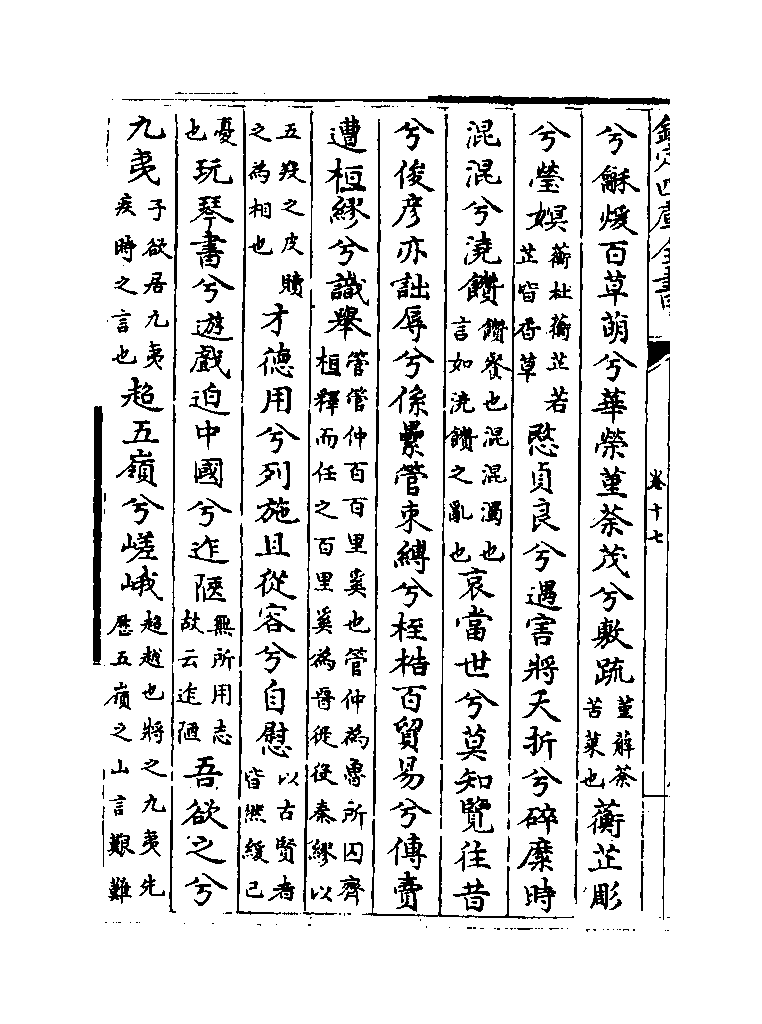 欽定四庫全書
卷十七
兮龢煖百草萌兮華榮菫荼茂兮敷疏菫觧荼苦菜也蘅芷彫
兮瑩嫇蘅杜蘅芷若芷皆香草愍貞良兮遇害將夭折兮碎糜時
混混兮澆饡饡餐也混混濁也言如澆饡之亂也哀當世兮莫知覽往昔
兮俊彦亦詘辱兮係纍管束縛兮桎梏百貿易兮傳賣
遭桓繆兮識舉管管仲百百里奚也管仲為魯所囚齊桓釋而任之百里奚為晉從後秦繆以
五羖之皮贖之為相也才德用兮列施且從容兮自慰以古賢者皆然緩己
憂也玩琴書兮遊戲迫中國兮迮陿無所用志故云迮陋吾欲之兮
九夷子欲居九夷疾時之言也超五嶺兮嵯峨超越也將之九夷先歷五嶺之山言艱難